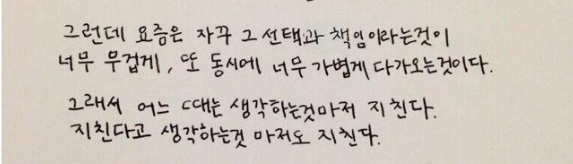 그런데 요즘은 자꾸 그 선택과 책임이라는것이
너무 무겁게, 또 동시에 너무 가볍게 다가오는것이다.
그래서 어느 때는 생각하는것마저 지친다.
지친다고 생각하는것 마저도 지친다.